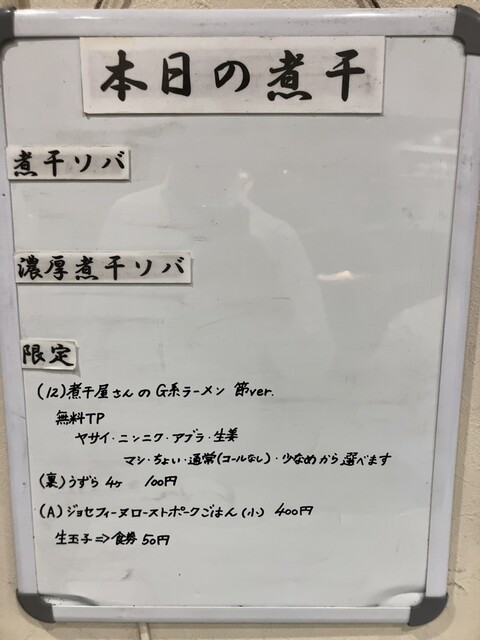 本日の煮干
煮干ソバ
濃厚煮干ソバ
限定
(12)煮干屋さんのG系ラーメン 節ver.
無料TP
ヤサイ・ニンニク・アブラ・生姜
マシ・ちょい・通常(コールなし)・少なめから選べます
(裏)うずら 4ヶ 100円
(A)ジョセフィーヌローストポークごはん(小) 400円
生玉子⇒食券 50円